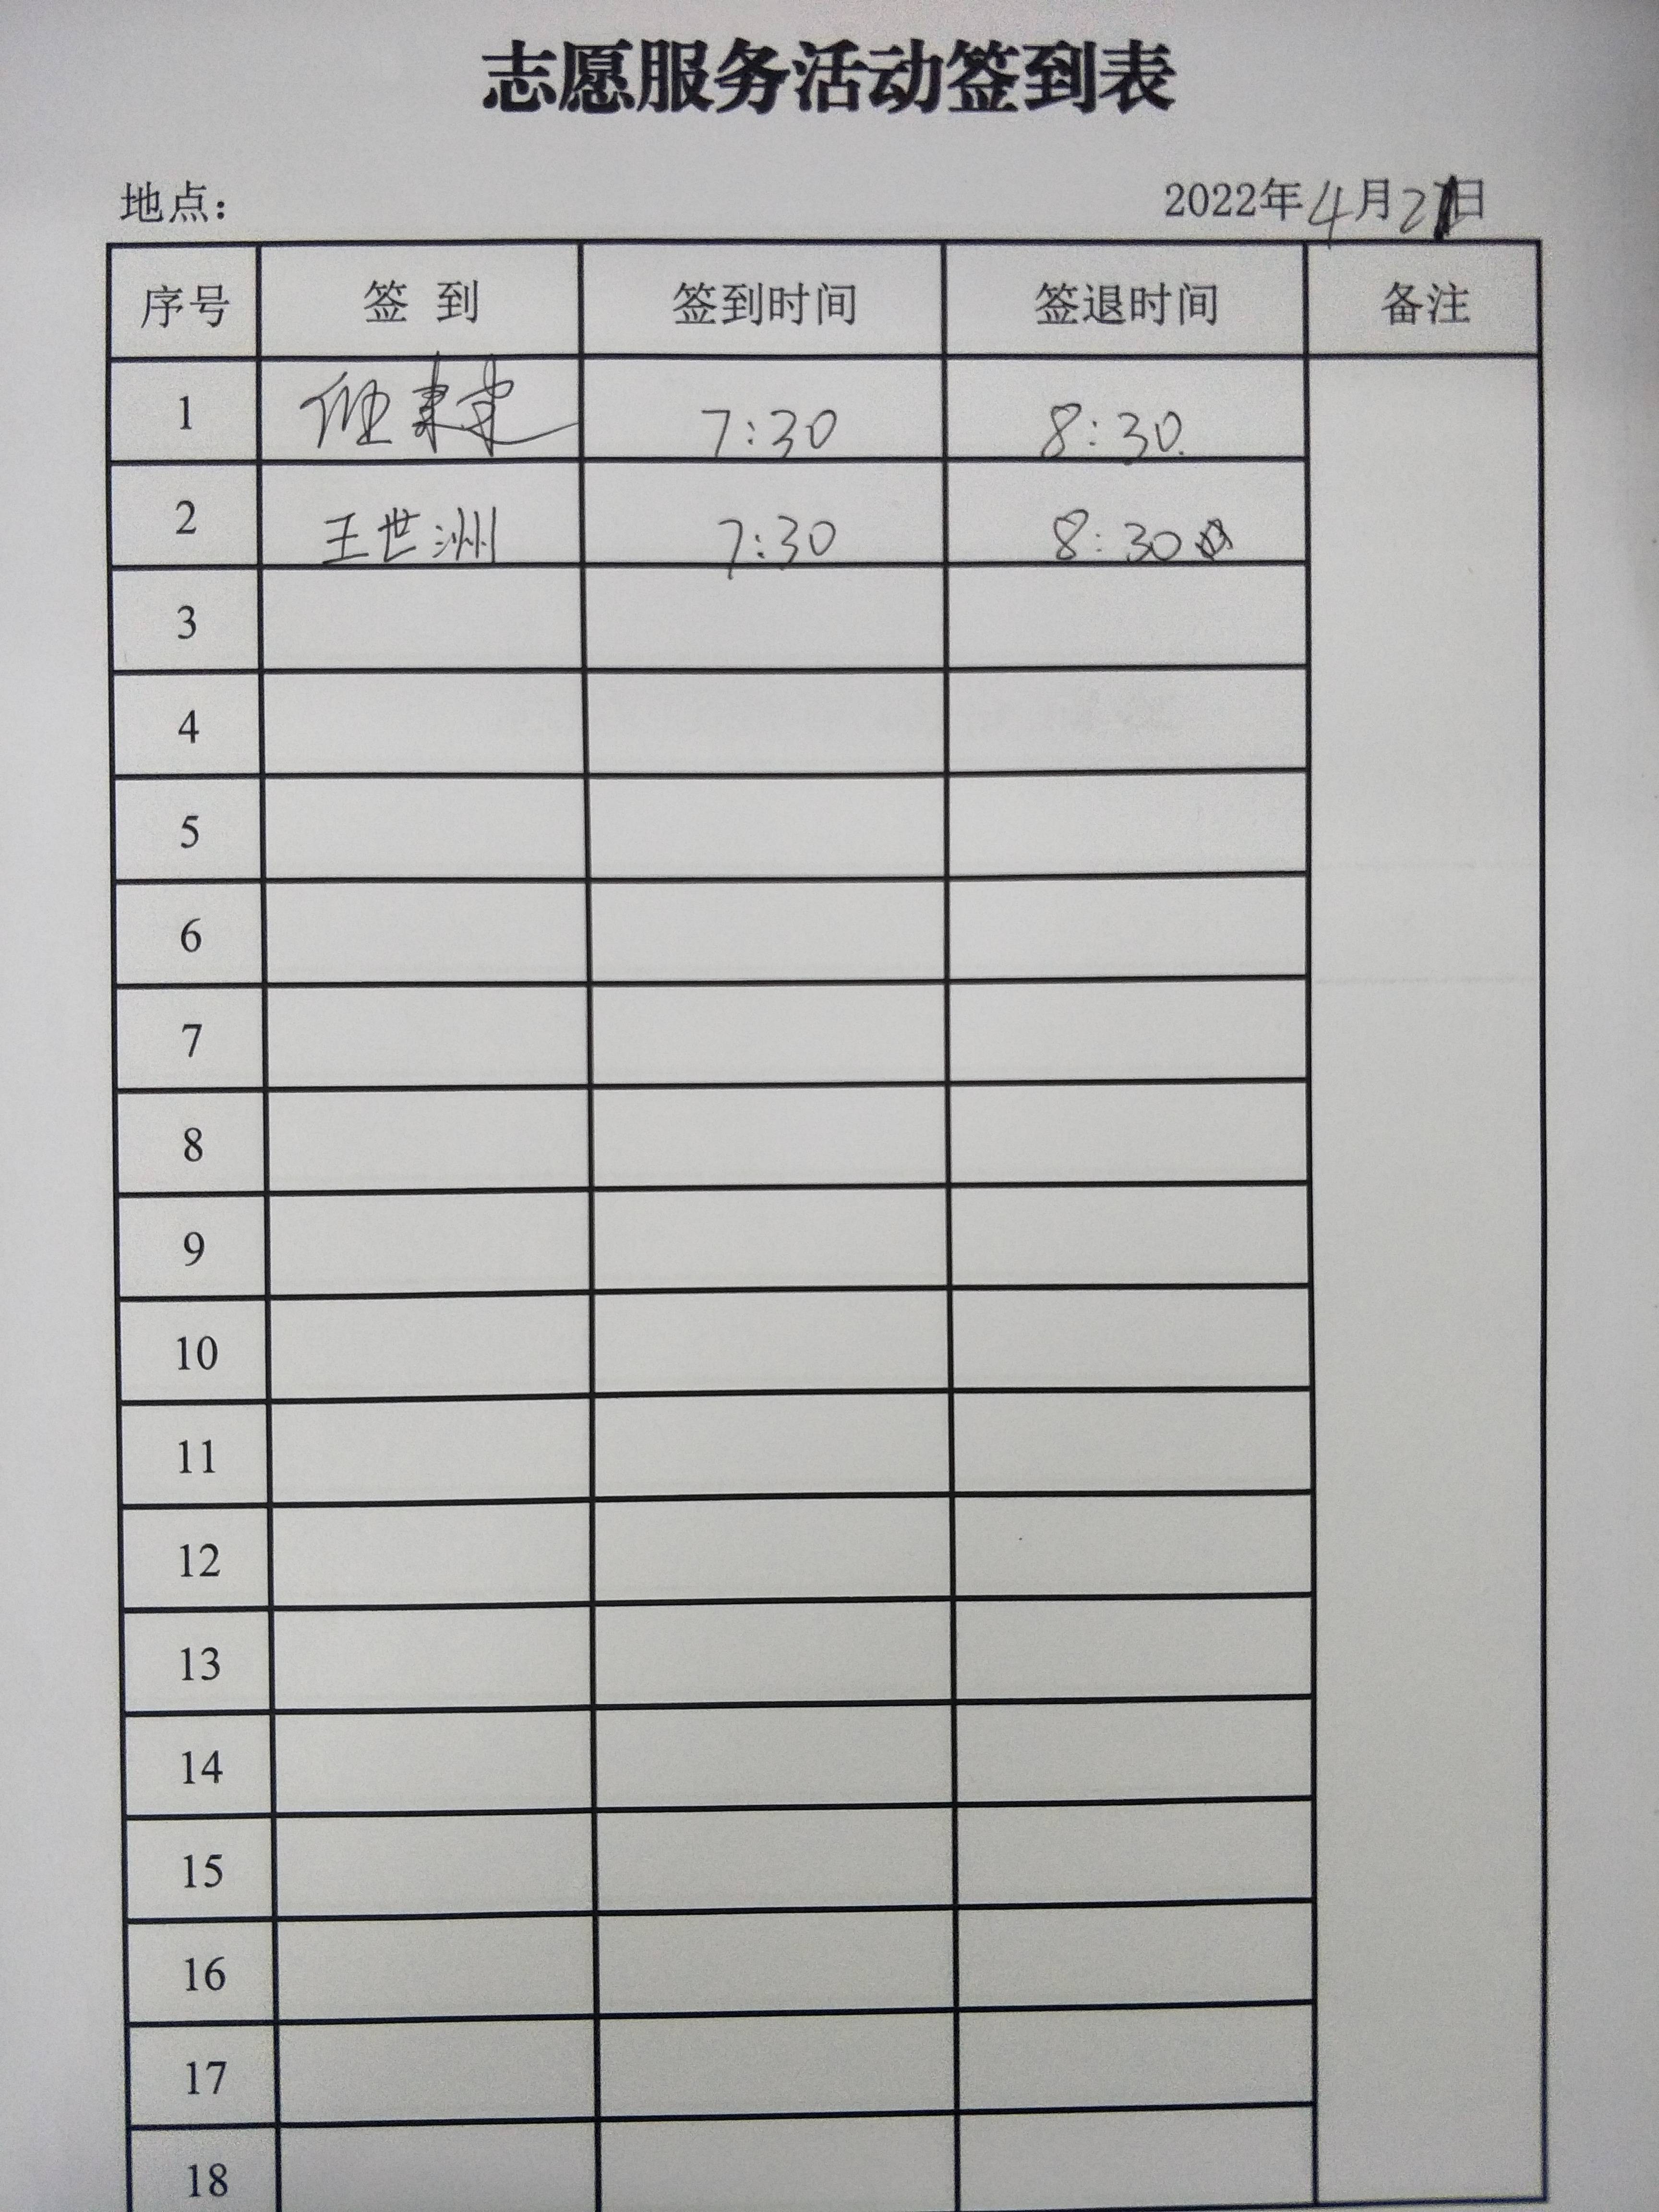 志愿服务活动签到表
地点： 2022年4月21日
序号 签 到 签到时间 签退时间 备注
1 7:30 8:30.
2 王世洲 7:30 8:30
3
4
5
6
7
8
9
10
11
12
13
14
15
16
17
18